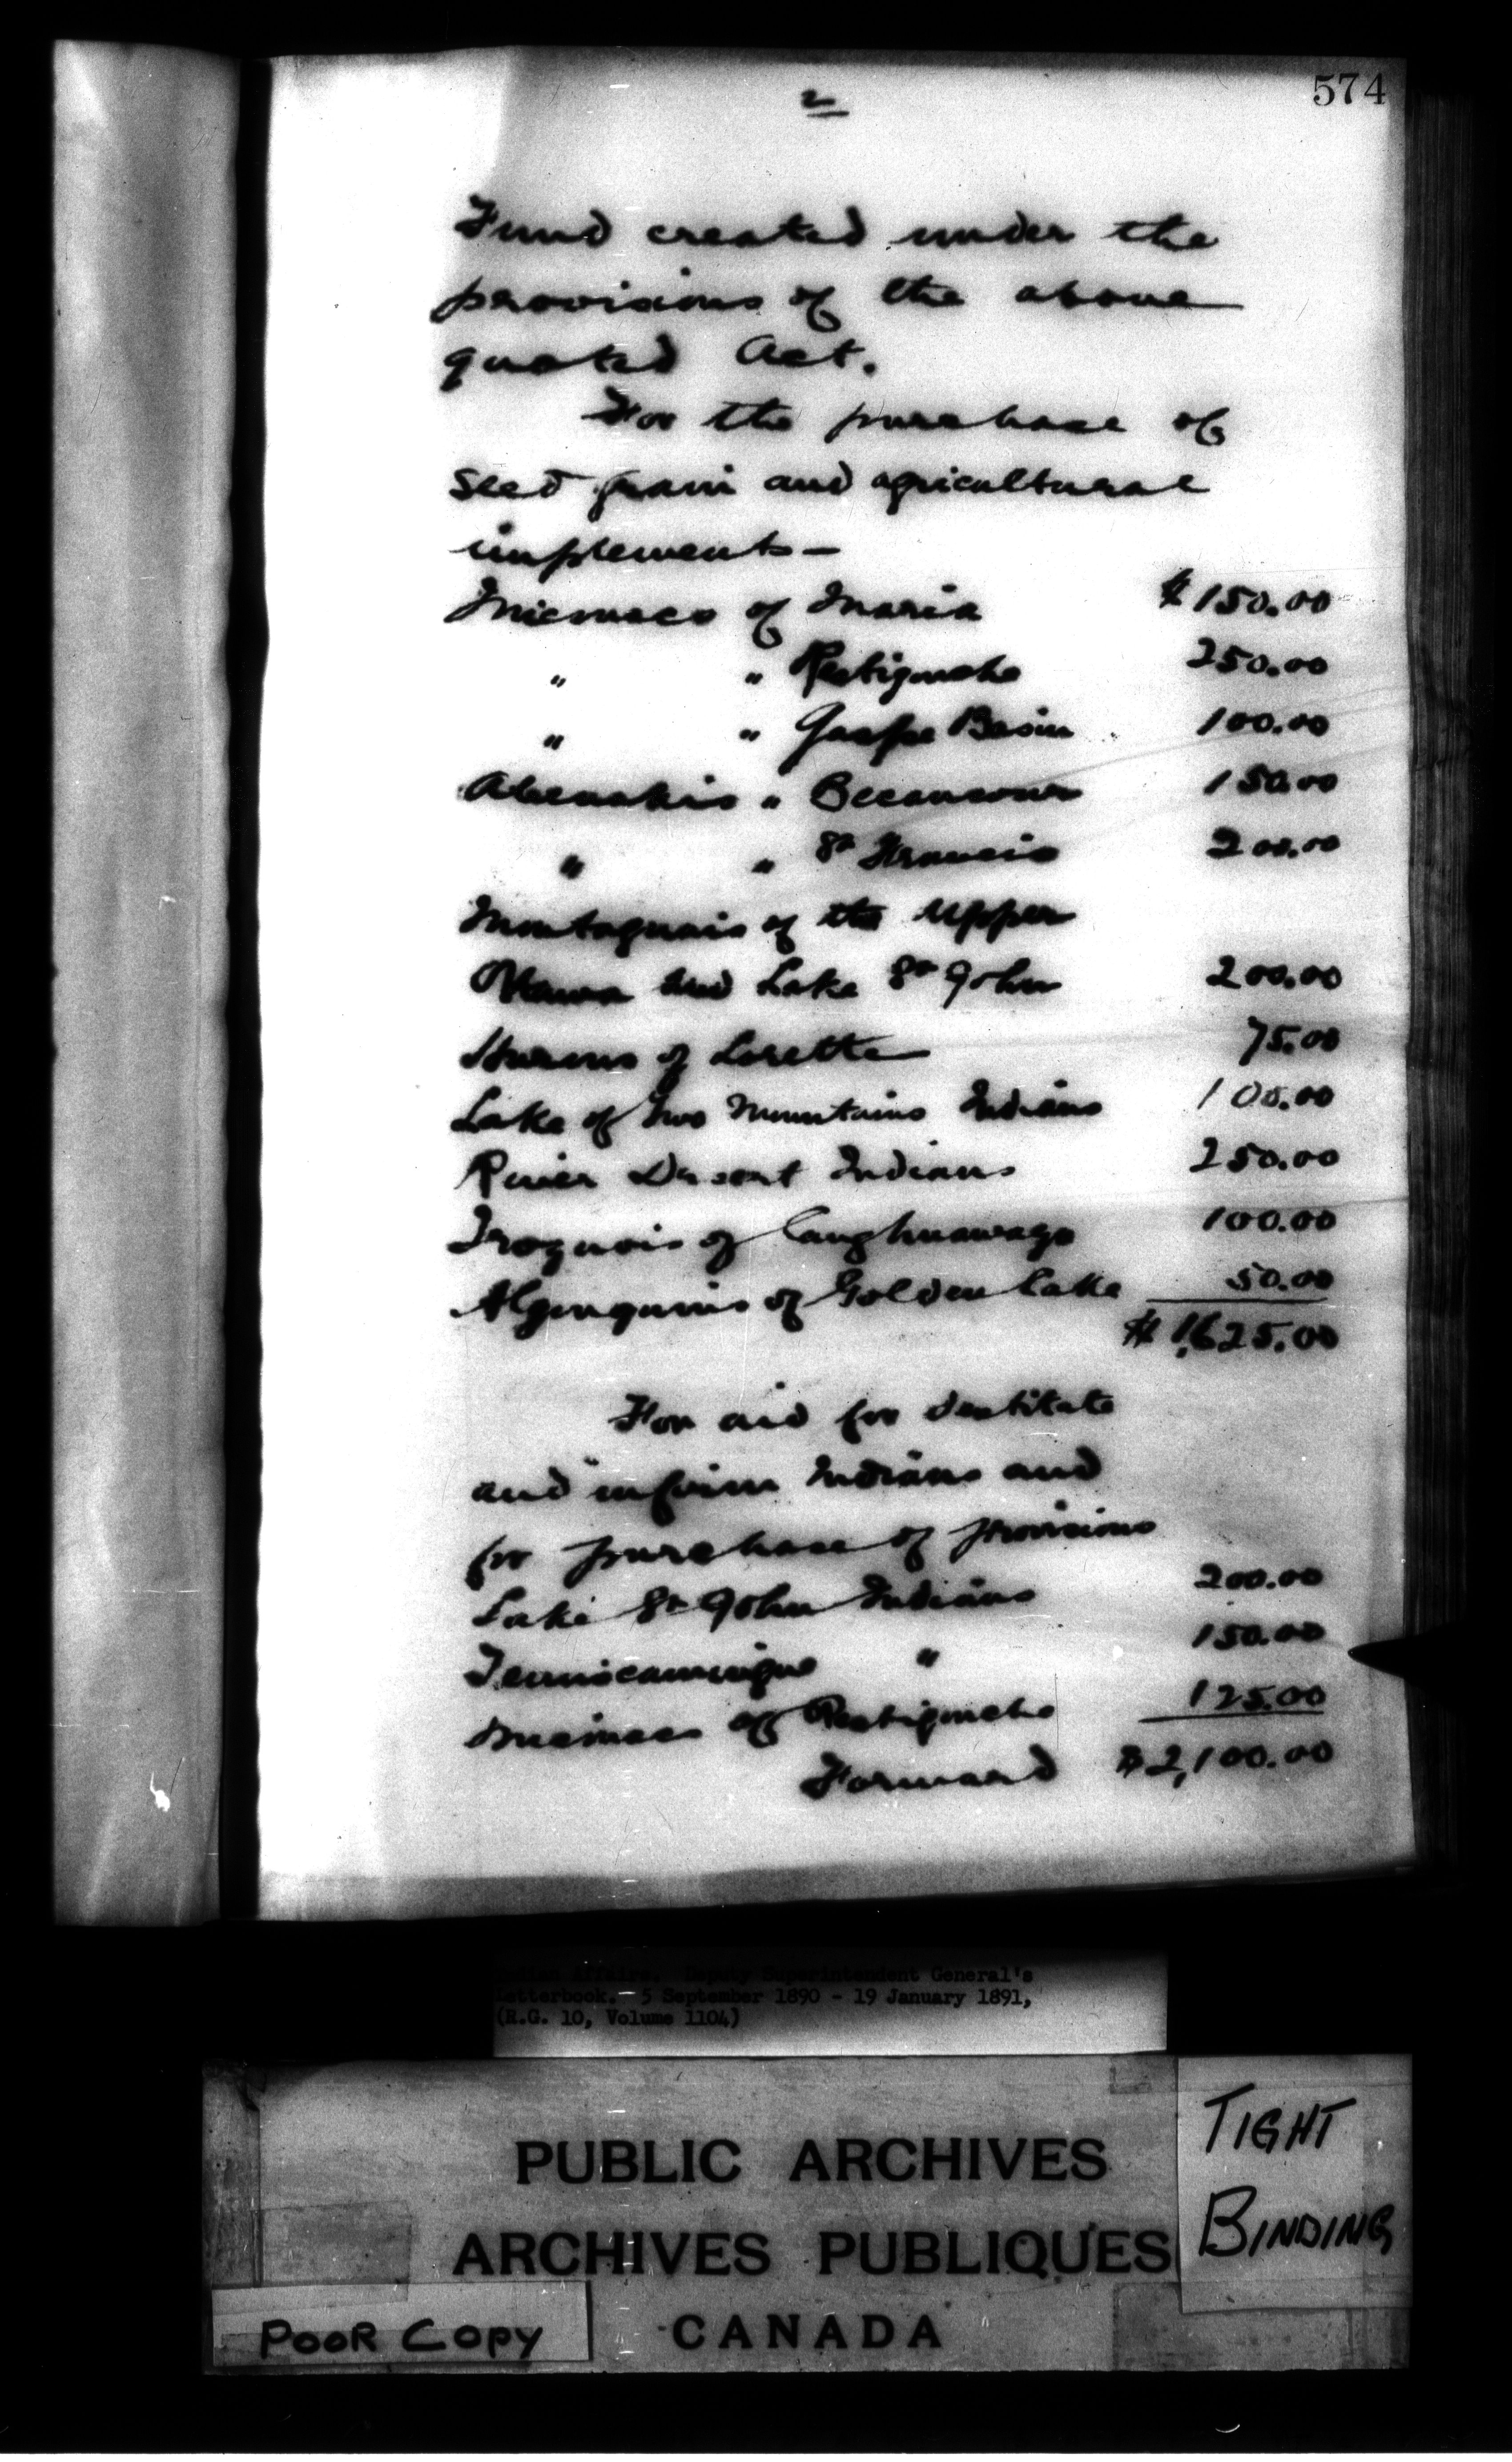 574
2
Fund created under the
provisions of the above
quoted Act.
For the purchase of
seed grain and agricultural
implements —
Micmacs of Maria $150.00
" " Restigouche 250.00
" " Gaspe Basin 100.00
Abenakis " Becancour 150.00
" " St Francis 200.00
Montagnais of the Upper
Ottawa and Lake St John 200.00
Hurons of Lorette 75.00
Lake of Two Mountains Indians 100.00
River Desert Indians 250.00
Iroquois of Caughnawaga 100.00
Algonquins of Golden Lake 50.00
$1,625.00
For aid for destitute
and infirm Indians and
for purchase of provisions
Lake St John Indians 200.00
Temiscamingue " 150.00
Micmacs of Restigouche 125.00
Forward $2,100.00
Indian Affairs. Deputy Superintendent General's
Letterbook. - 5 September 1890 - 19 January 1891,
(R.G. 10, Volume 1104)
PUBLIC ARCHIVES
ARCHIVES PUBLIQUES
CANADA
TIGHT
BINDING
POOR COPY